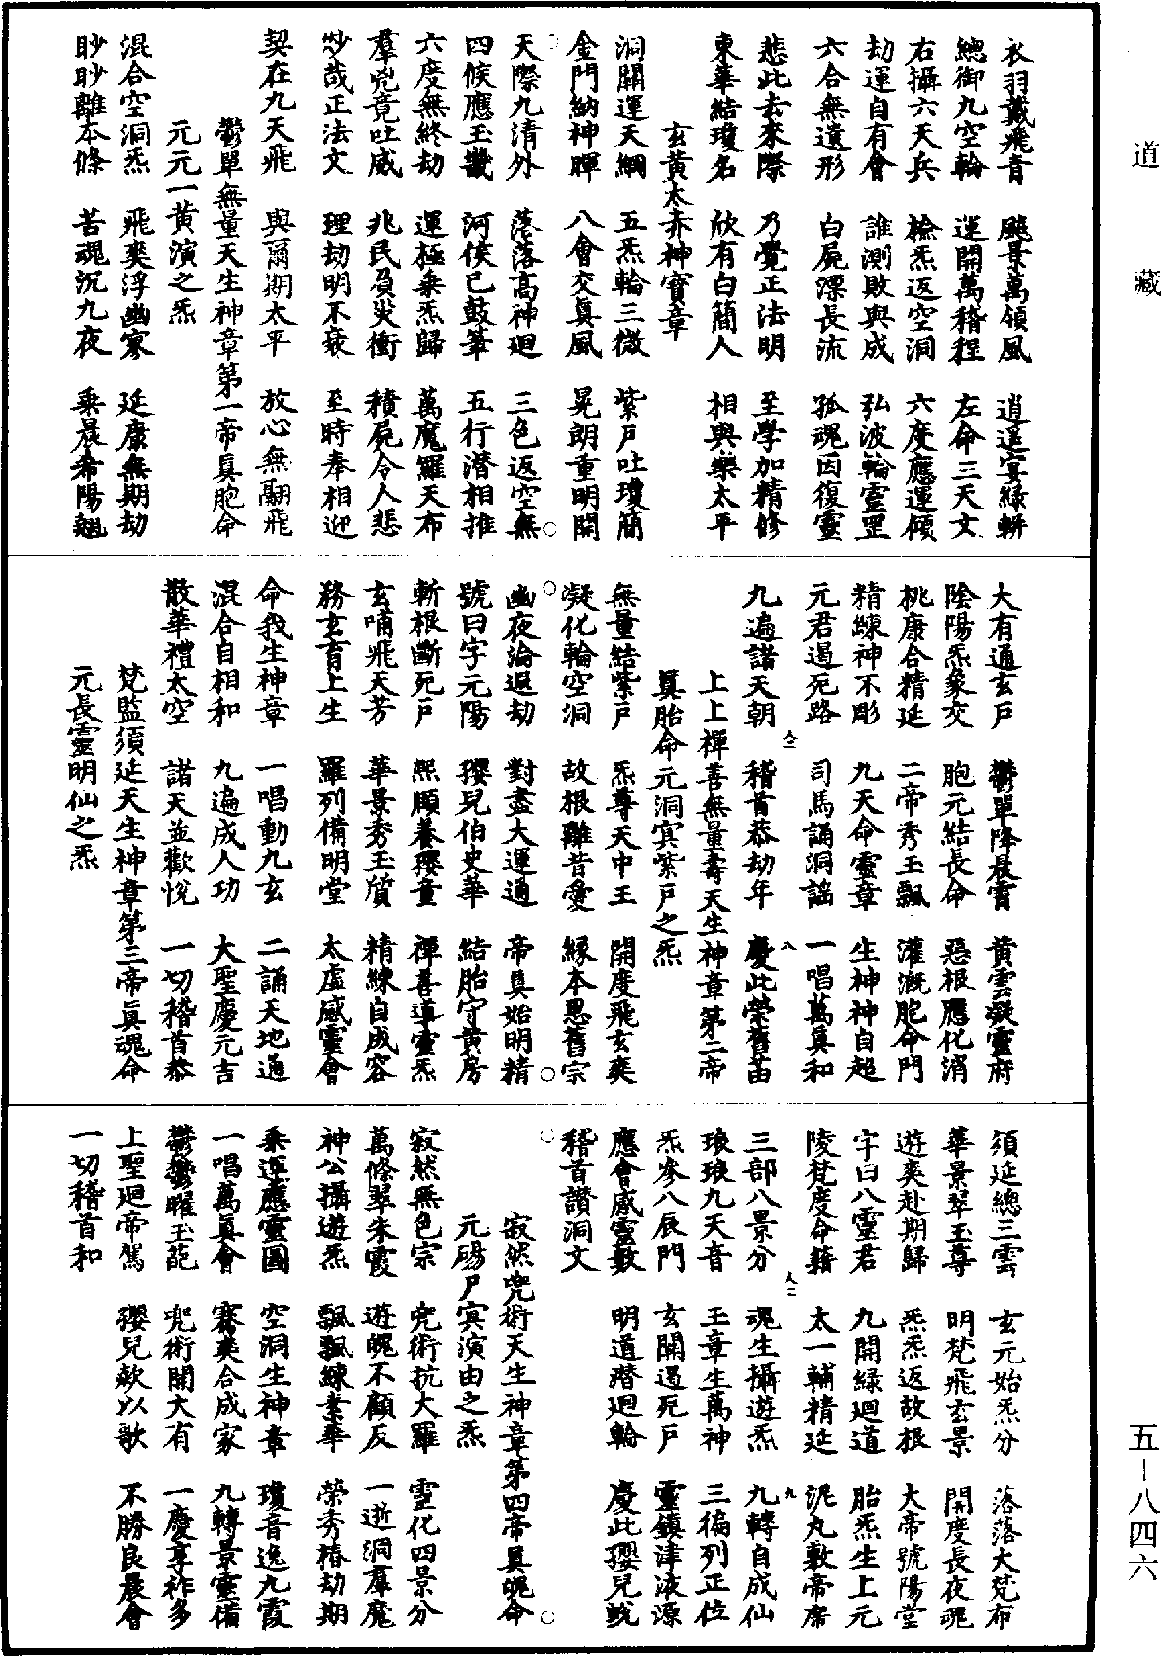 道藏
五－八四六
衣羽戴飛青　飈景萬領風　逍遥宴緑軿
總御九空輪　運開萬稽程　左命三天文
右攝六天兵　檢炁返空洞　六度應運傾
劫運自有會　誰測敗與成　弘波輪靈罡
六合無遺形　白屍漂長流　孤魂因復靈
悲此去來際　乃覺正法明　至學加精修
東華結瓊名　欣有白簡人　相與樂太平
玄黃太赤神寶章
洞關運天綱　五炁輪三微　紫戶吐瓊簡
金門納神暉　八會交真風　晃朗重明開
天際九清外　落落高神迴　三色返空無
四候應玉璣　河侯已鼓筆　五行潛相推
六度無終劫　運極乘炁歸　萬魔羅天布
羣兇竟吐威　兆民負災衝　積屍令人悲
妙哉正法文　理劫明不衰　至時奉相迎
契在九天飛　與爾期太平　放心無翮飛
鬱單無量天生神章第一帝真胞命
元元一黃演之炁
混合空洞炁　飛爽浮幽寥　延康無期劫
眇眇離本條　苦魂沉九夜　乘晨希陽翹
大有通玄戶　鬱單降晨霄　黃雲凝靈府
陰陽炁象交　胞元結長命　惡根應化消
桃康合精延　二帝秀玉飄　灌溉胞命門
精練神不彫　九天命靈章　生神神自超
元君遏死路　司馬誦洞謡　一唱萬真和
九遍諸天朝　稽首恭劫年　慶此榮舊苗
上上禪善無量壽天生神章第二帝
真胎命元洞冥紫戶之炁
無量結紫戶　炁尊天中王　開度飛玄爽
凝化輪空洞　故根離昔愛　緣本思舊宗
幽夜淪遐劫　對盡大運通　帝真始明精
號曰字元陽　瓔兒伯史華　結胎守黃房
斬根斷死戶　熙頤養瓔童　禪善導靈炁
玄哺飛天芳　華景秀玉質　精練自成容
務玄育上生　羅列備明堂　太虛感靈會
命我生神章　一唱動九玄　二誦天地通
混合自相和　九遍成人功　大聖慶元吉
散華禮太空　諸天並歡悅　一切稽首恭
梵監須延天生神章第三帝真魂命
元長靈明仙之炁
須延總三雲　玄元始炁分　落落大梵布
華景翠玉尊　明梵飛玄景　開度長夜魂
遊爽赴期歸　炁炁返故根　大帝號陽堂
字曰八靈君　九開緑迴道　胎炁生上元
陵梵度命籍　太一輔精延　泥丸敷帝席
三部八景分　魂生攝遊炁　九轉自成仙
琅琅九天音　玉章生萬神　三徧列正位
炁參八辰門　玄關遏死戶　靈鎮津液源
應會感靈數　明道潛迴輪　慶此瓔兒蛻
稽首讚洞文
寂然兜術天生神章第四帝真魄命
元碭尸冥演由之炁
寂然無色宗　兜術抗大羅　靈化四景分
萬條翠朱霞　遊魄不顧反　一逝洞羣魔
神公攝遊炁　飄飄練素華　榮秀椿劫期
乘運應靈圖　空洞生神章　瓊音逸九霞
一唱萬真會　騫爽合成家　九轉景靈備
鬱鬱曜玉葩　兜術開大有　一慶享祚多
上聖迴帝駕　瓔兒歡以歌　不勝良晨會
一切稽首和